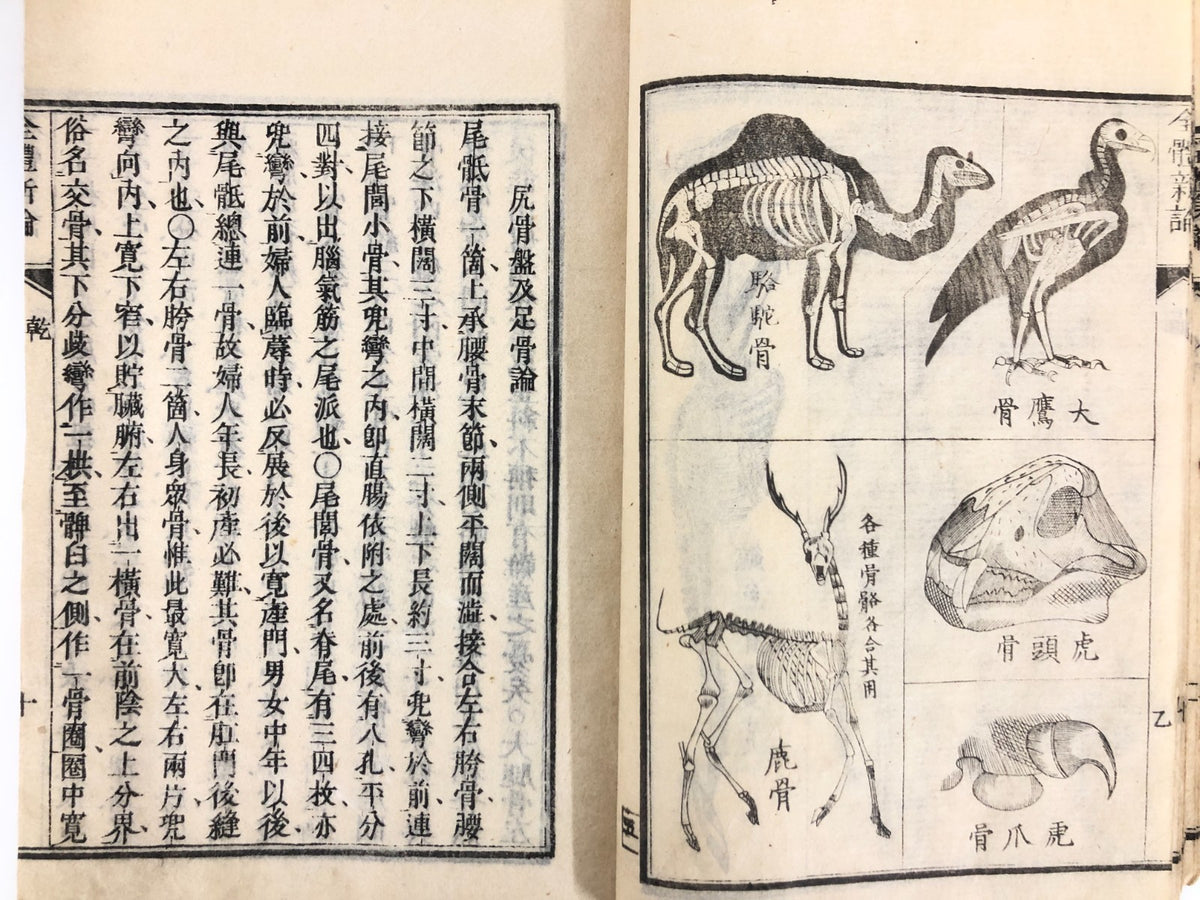 全體新論
乙
大鷹骨
駱駝骨
虎頭骨
各種骨骼各合其用
鹿骨
虎爪骨
尻骨盤及足骨論
尾骶骨一箇、上承腰骨末節、兩側平闊而澁、接合左右胯骨、腰
節之下橫闊三寸、中間橫闊二寸、上下長約三寸、兜彎於前、連
接尾閭小骨、其兜彎之內、卽直腸依附之處、前後有八孔、平分
四對、以出腦氣筋之尾派也、〇尾閭骨又名脊尾、有三四枚、亦
兜彎於前、婦人臨蓐時、必反展於後、以寬產門、男女中年以後、
與尾骶總連一骨、故婦人年長、初產必難、其骨卽在肛門後縫
之內也、〇左右胯骨二箇、人身眾骨、惟此最寬大、左右兩片、兜
彎向內、上寬下窄、以貯臟腑、左右出一橫骨、在前陰之上分界、
俗名交骨、其下分歧、彎作一拱、至髀臼之側、作一骨圈、圈中寬
全體新論
乾
十